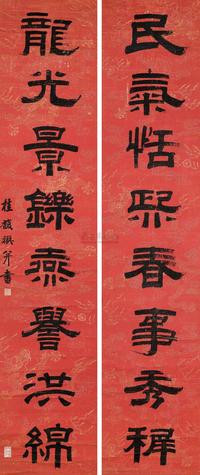 民氣恬熙春事秀稺
龍光景鑠燕譽洪綿
桂馥撰并書